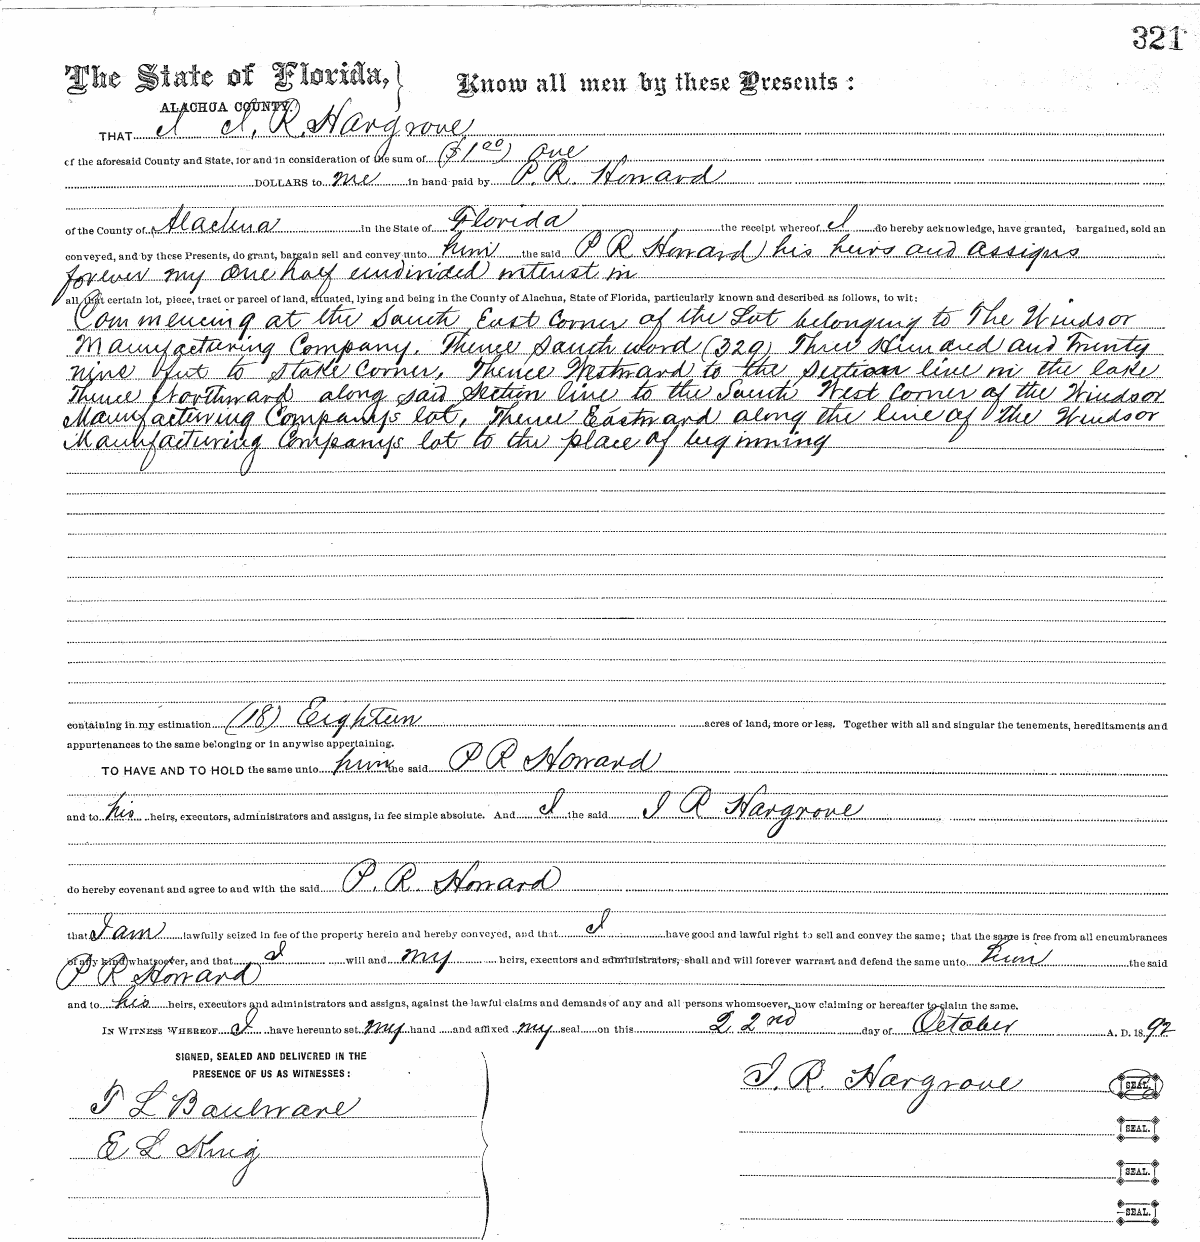 321
The State of Florida, } Know all men by these Presents:
ALACHUA COUNTY.
THAT I I. R. Hargrove
of the aforesaid County and State, for and in consideration of the sum of ($1 00) One
DOLLARS to me in hand paid by P. R. Howard
of the County of Alachua in the State of Florida the receipt whereof I do hereby acknowledge, have granted, bargained, sold an
conveyed, and by these Presents, do grant, bargain sell and convey unto him the said P R Howard his heirs and assigns
forever my one half undivided interest in
all that certain lot, piece, tract or parcel of land, situated, lying and being in the County of Alachua, State of Florida, particularly known and described as follows, to wit:
Commencing at the South East Corner of the Lot belonging to The Windsor
Manufacturing Company. Thence South word (329) Three Hundred and twenty
nine feet to stake Corner. Thence Westward to the section line in the lake
Thence Northward along said Section line to the South West Corner of the Windsor
Manufacturing Companys lot. Thence Eastward along the line of The Windsor
Manufacturing Companys lot to the place of beginning
containing in my estimation (18) Eighteen acres of land, more or less. Together with all and singular the tenements, hereditaments and
appurtenances to the same belonging or in anywise appertaining.
TO HAVE AND TO HOLD the same unto him the said P R Howard
and to his heirs, executors, administrators and assigns, in fee simple absolute. And I the said I R Hargrove
do hereby covenant and agree to and with the said P. R. Howard
that I am lawfully seized in fee of the property herein and hereby conveyed, and that I have good and lawful right to sell and convey the same; that the same is free from all encumbrances
of any kind whatsoever, and that I will and my heirs, executors and administrators, shall and will forever warrant and defend the same unto him the said
P R Howard
and to his heirs, executors and administrators and assigns, against the lawful claims and demands of any and all persons whomsoever, now claiming or hereafter to claim the same.
IN WITNESS WHEREOF I have hereunto set my hand and affixed my seal on this 22nd day of October A. D. 1892
SIGNED, SEALED AND DELIVERED IN THE
PRESENCE OF US AS WITNESSES:
I. R. Hargrove SEAL.
T L Baulware
SEAL.
E L King
SEAL.
SEAL.